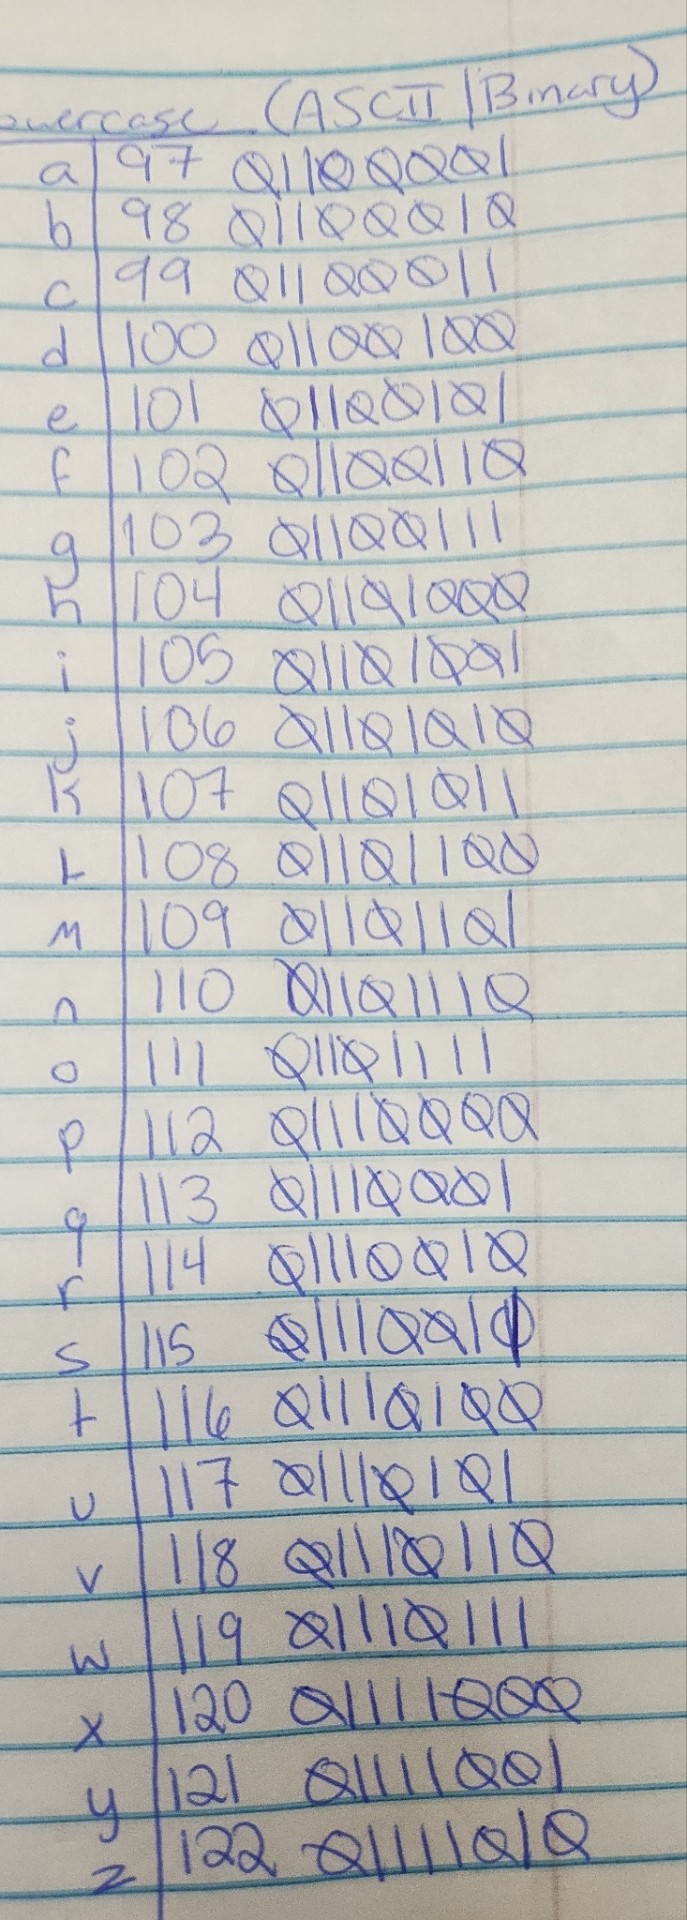 owercase (ASCII / Binary)
a 97 01100001
b 98 01100010
c 99 01100011
d 100 01100100
e 101 01100101
f 102 01100110
g 103 01100111
h 104 01101000
i 105 01101001
j 106 01101010
k 107 01101011
L 108 01101100
m 109 01101101
n 110 01101110
o 111 01101111
p 112 01110000
q 113 01110001
r 114 01110010
s 115 01110011
t 116 01110100
u 117 01110101
v 118 01110110
w 119 01110111
x 120 01111000
y 121 01111001
z 122 01111010